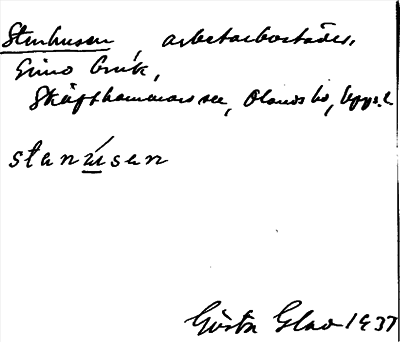 Stenhusen, arbetarbostäder,
Gimo bruk,
Skäfthammars sn, Olands hd, Uppl.
stanú̲sen
Gösta Glad 1937